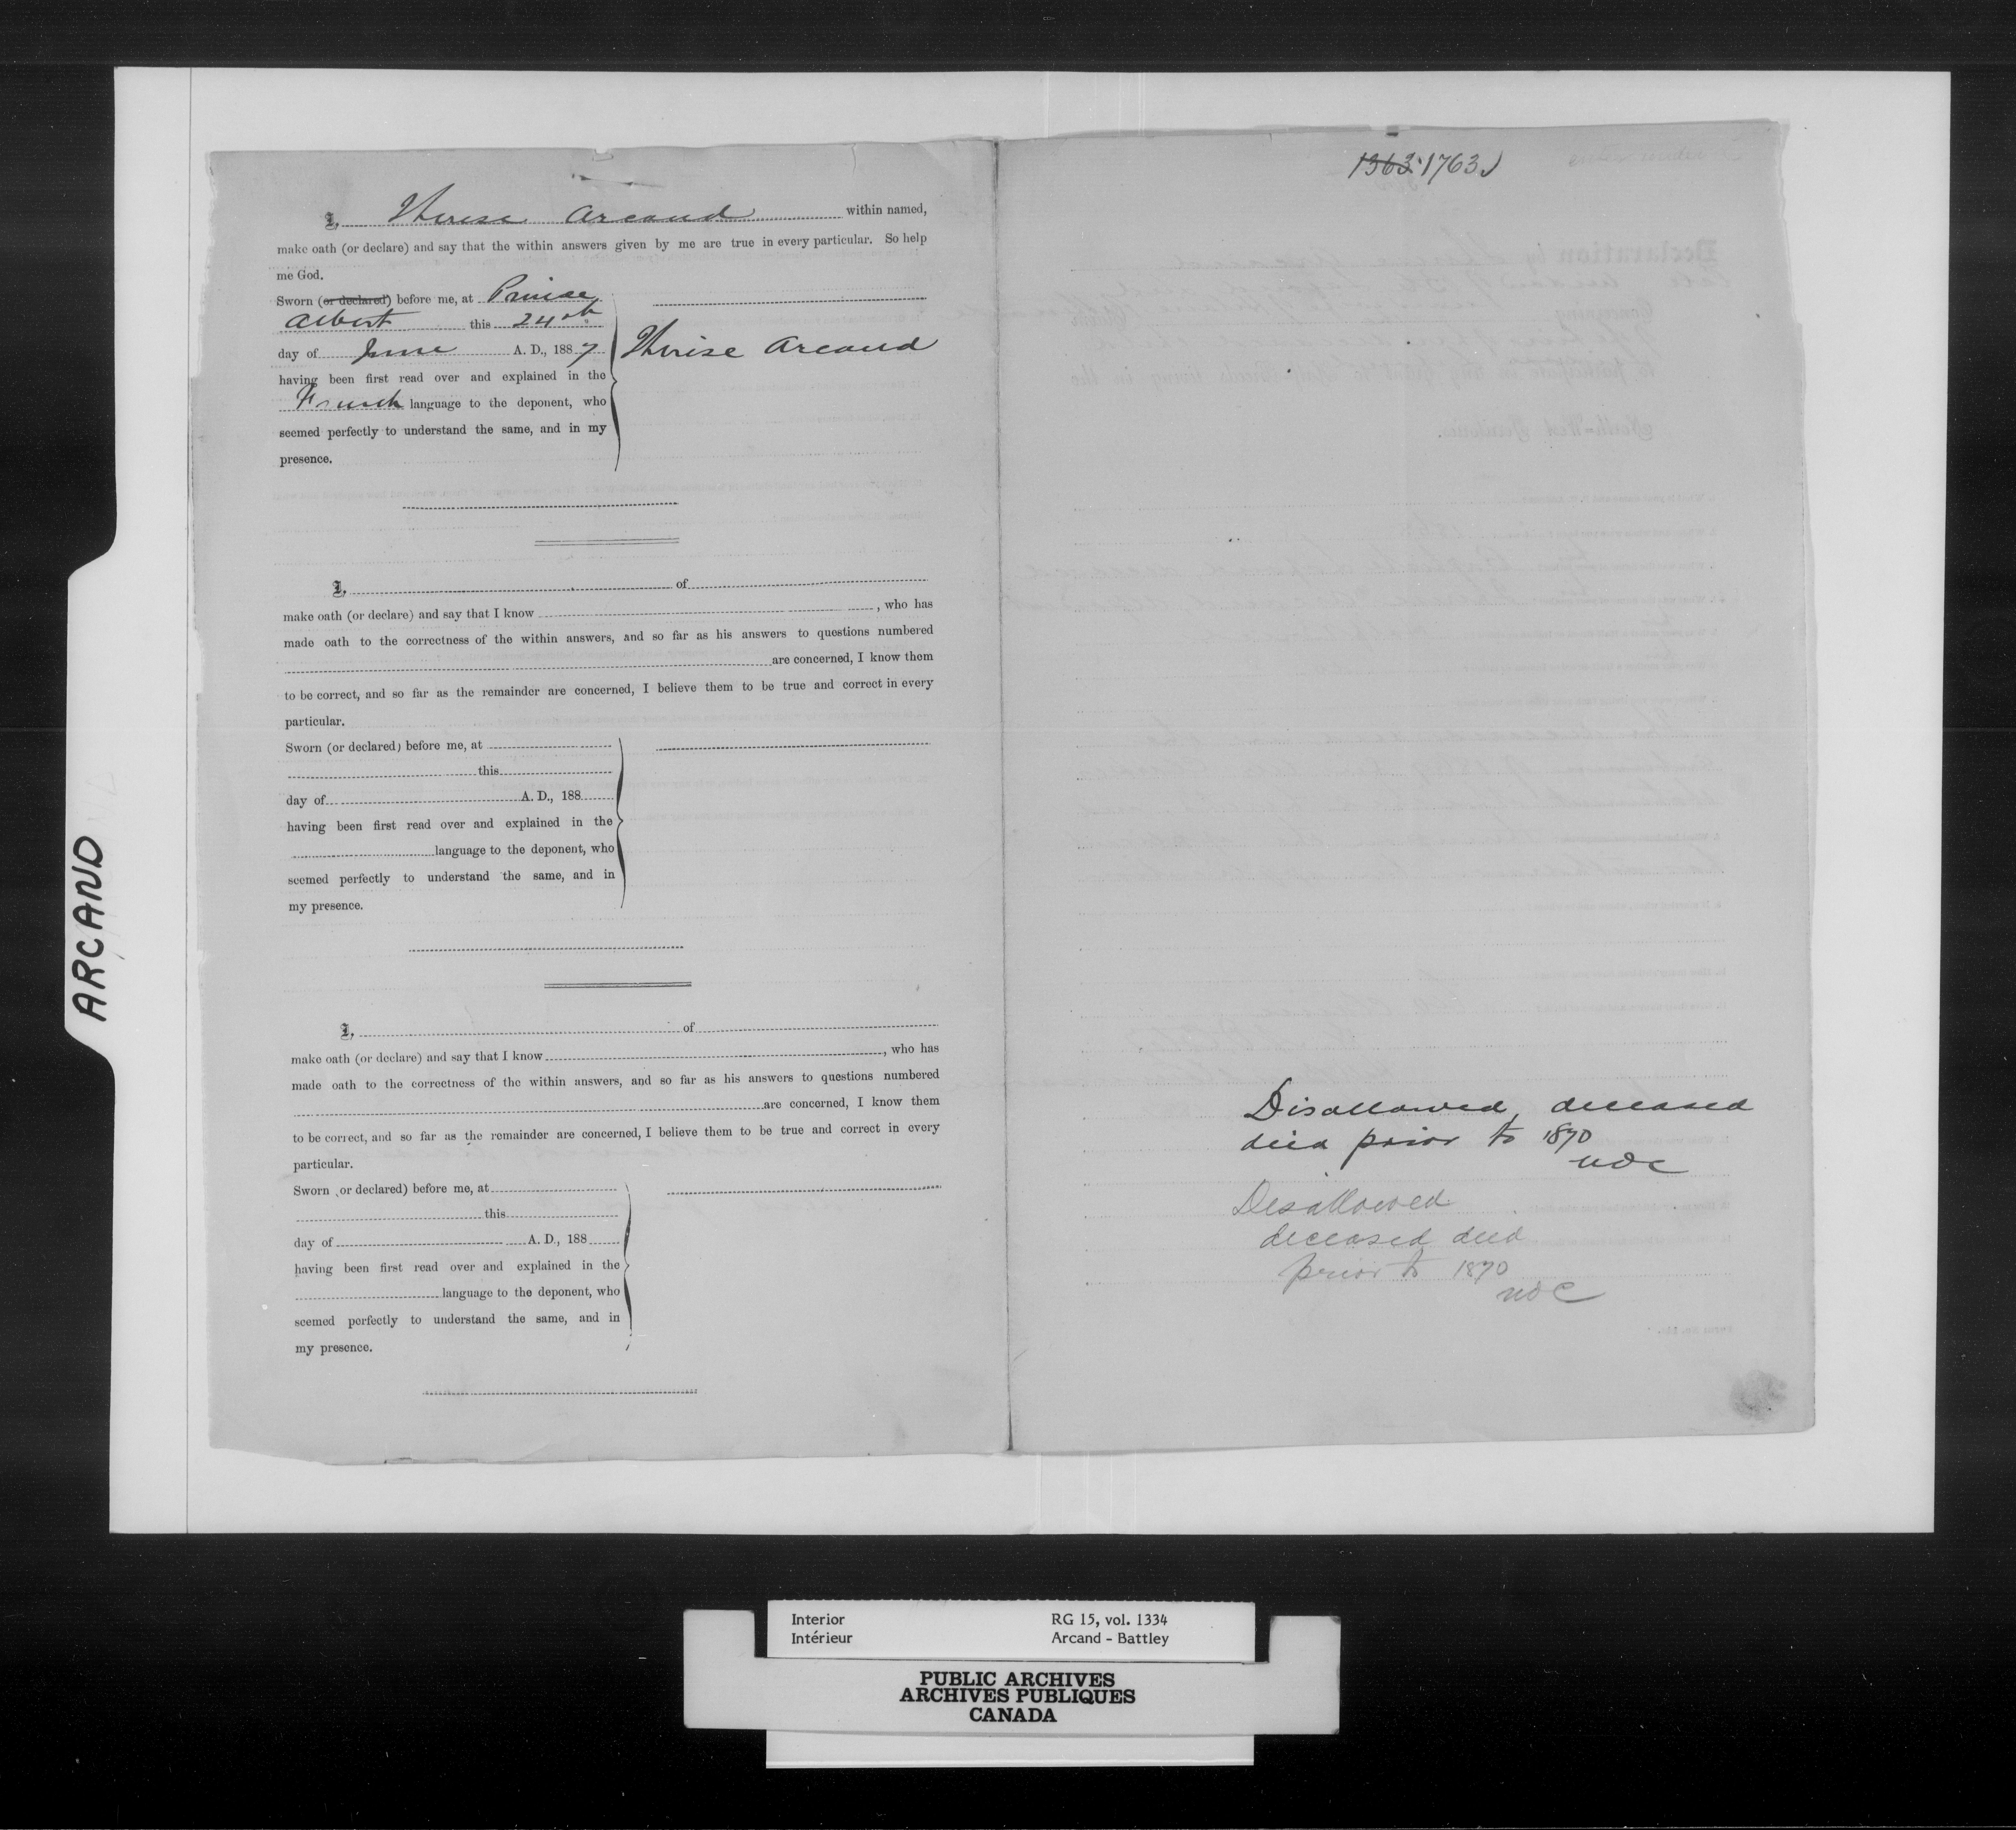 ARCAND
I, Therese Arcand within named,
make oath (or declare) and say that the within answers given by me are true in every particular. So help
me God.
Sworn (or declared) before me, at Prince
Albert this 24th
day of June A. D., 1887
Therise Arcand
having been first read over and explained in the
French language to the deponent, who
seemed perfectly to understand the same, and in my
presence.
I, of
make oath (or declare) and say that I know , who has
made oath to the correctness of the within answers, and so far as his answers to questions numbered
are concerned, I know them
to be correct, and so far as the remainder are concerned, I believe them to be true and correct in every
particular.
Sworn (or declared) before me, at
this
day of A. D., 188
having been first read over and explained in the
language to the deponent, who
seemed perfectly to understand the same, and in
my presence.
I, of
make oath (or declare) and say that I know , who has
made oath to the correctness of the within answers, and so far as his answers to questions numbered
are concerned, I know them
to be correct, and so far as the remainder are concerned, I believe them to be true and correct in every
particular.
Sworn (or declared) before me, at
this
day of A. D., 188
having been first read over and explained in the
language to the deponent, who
seemed perfectly to understand the same, and in
my presence.
1363 1763
Disallowed, deceased
died prior to 1870
NOC
Disallowed
deceased died
prior to 1870
NOC
Interior RG 15, vol. 1334
Intérieur Arcand - Battley
PUBLIC ARCHIVES
ARCHIVES PUBLIQUES
CANADA